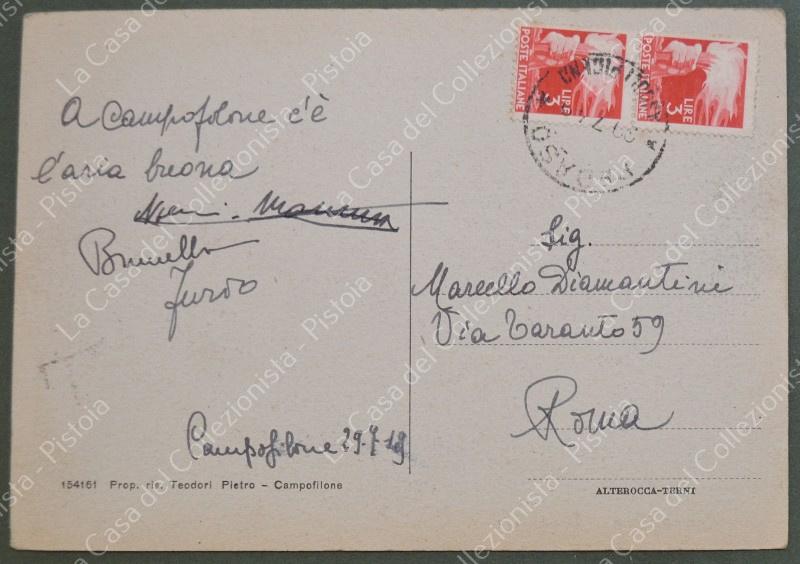 A Campofilone c'è
l'aria buona
Brunella
Campofilone 29.7.49
154161 Prop. ris. Teodori Pietro - Campofilone
POSTE ITALIANE
LIRE 3
POSTE ITALIANE
LIRE 3
Sig.
Marcello Diamantini
Via Taranto 59
Roma
ALTEROCCA-TERNI
La Casa del Collezionista - Pistoia